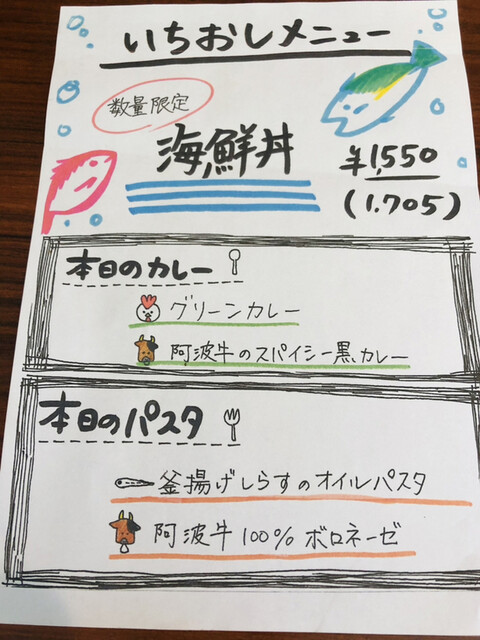 いちおしメニュー
数量限定
海鮮丼
¥1,550
(1.705)
本日のカレー
グリーンカレー
阿波牛のスパイシー黒カレー
本日のパスタ
釜揚げしらすのオイルパスタ
阿波牛100%ボロネーゼ